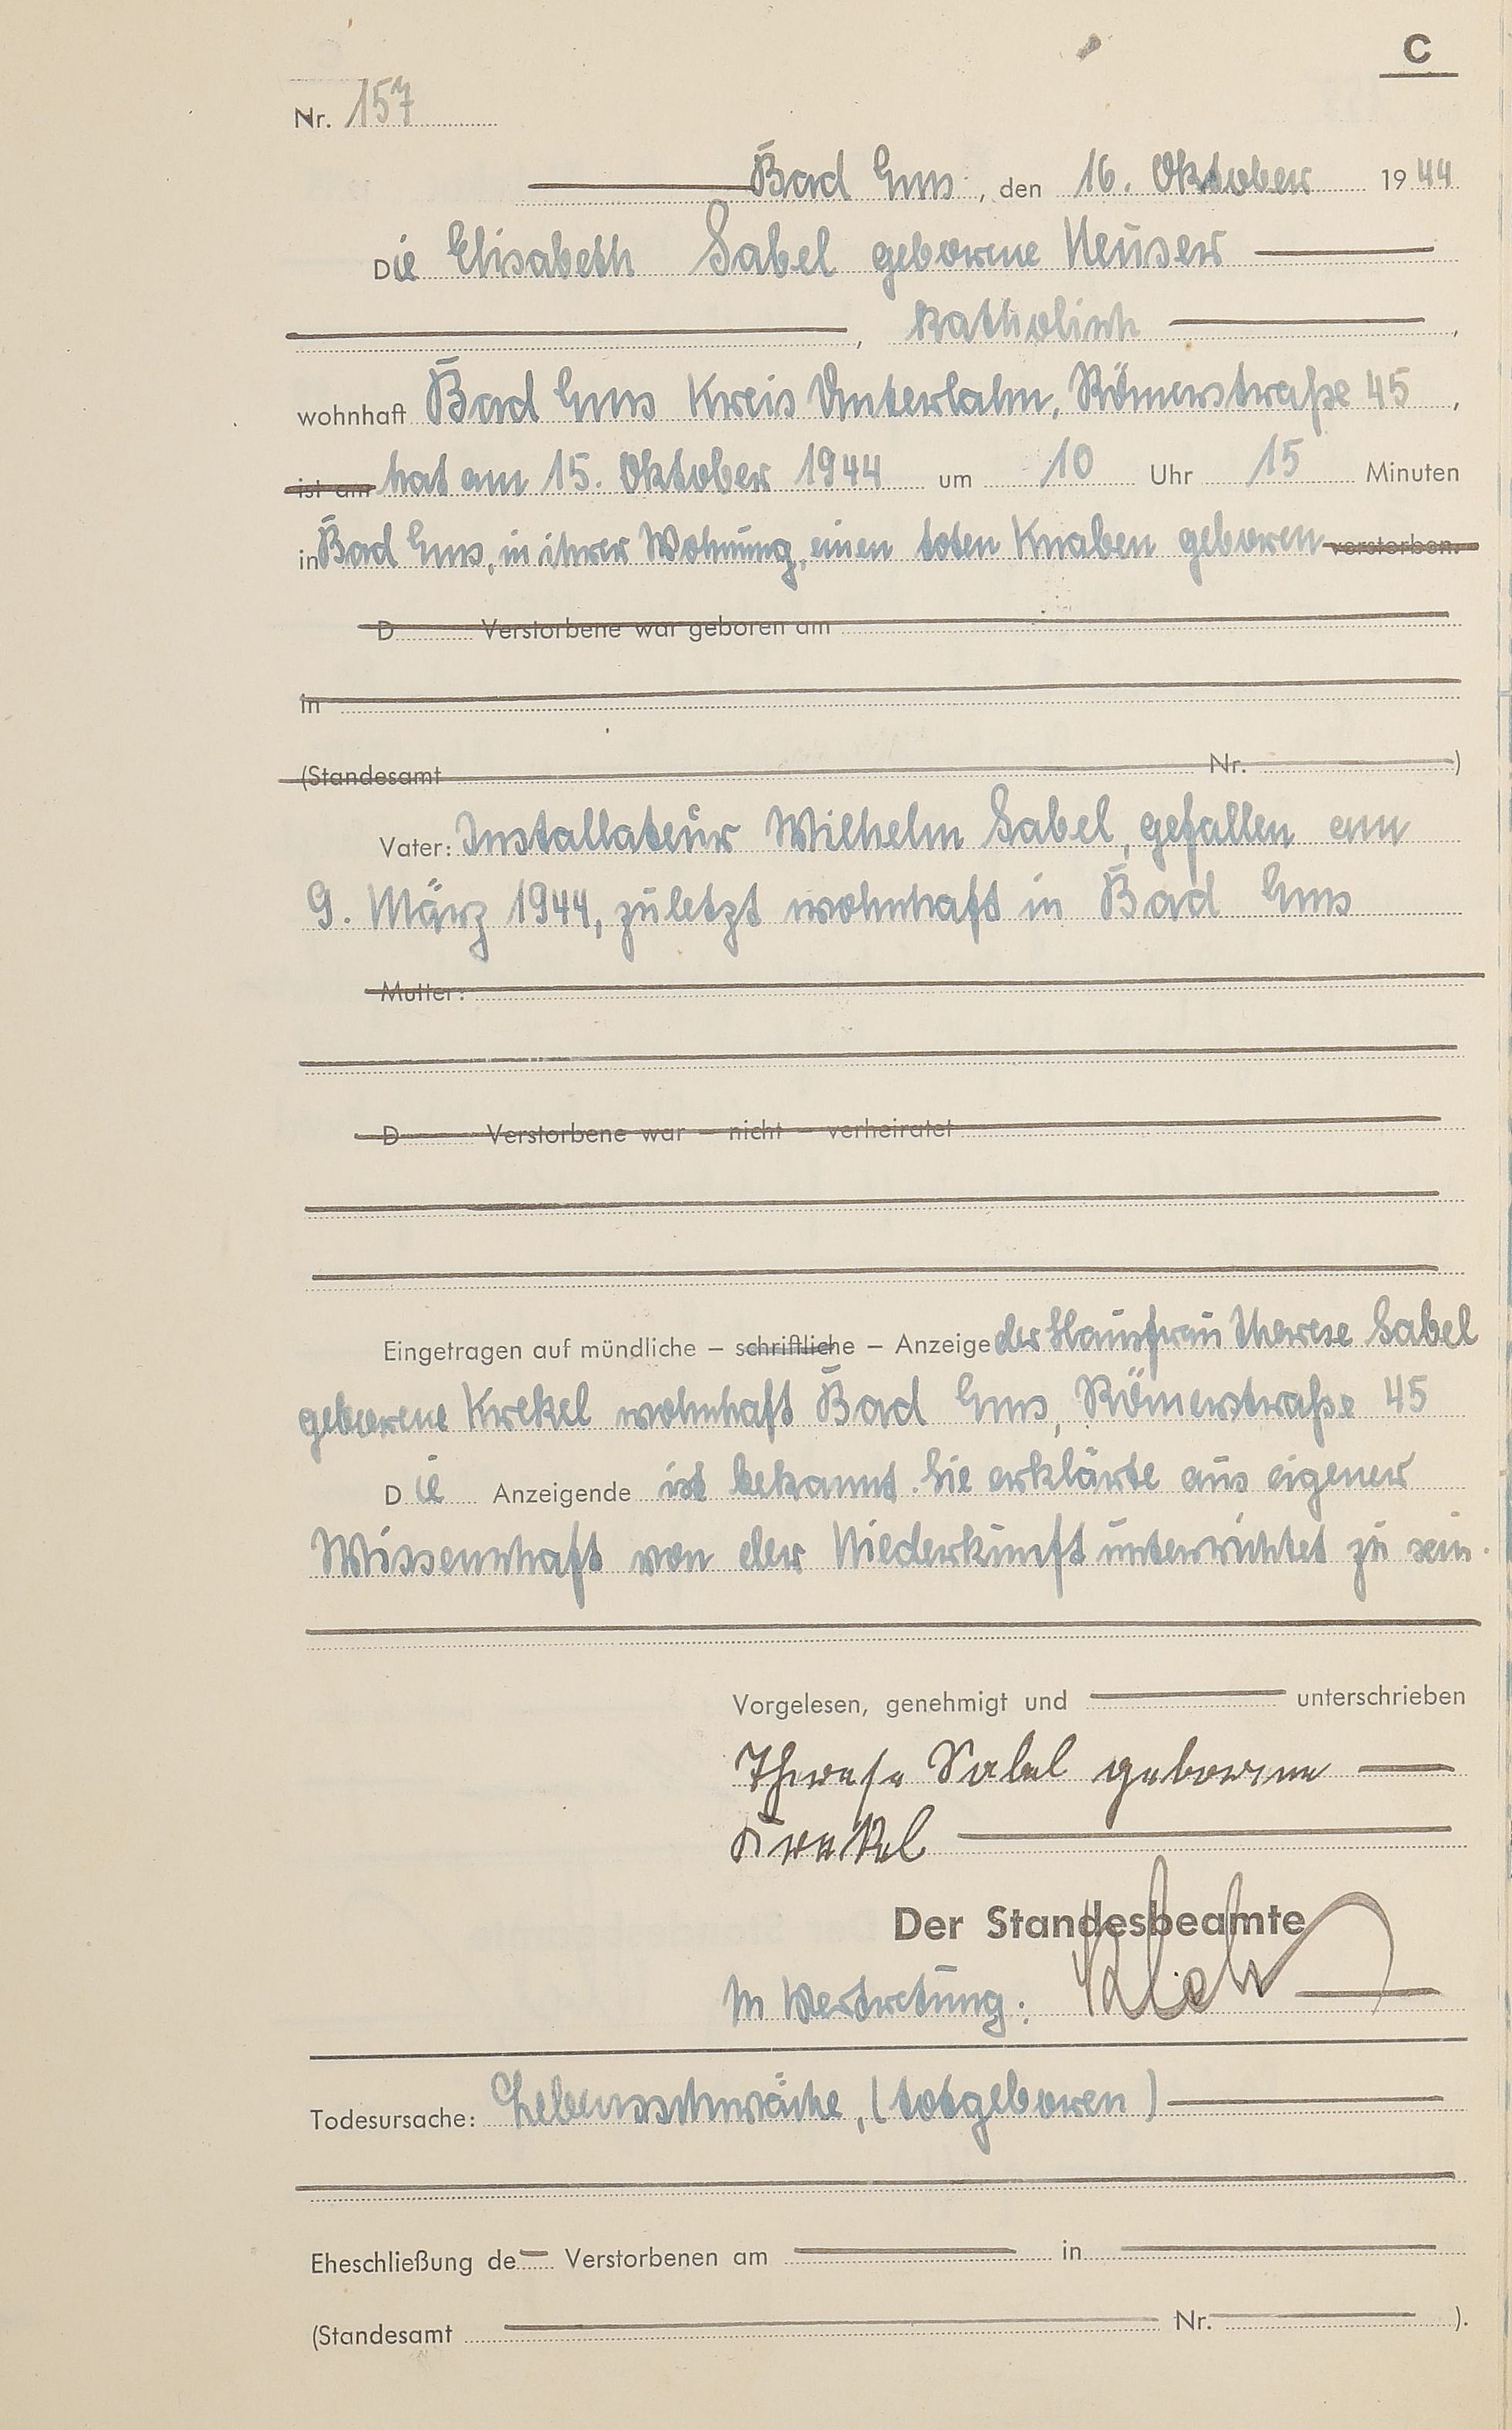 C
Nr. 157
Bad Ems, den 16. Oktober 1944
Die Elisabeth Sabel geborene Neuser
, katholisch ,
wohnhaft Bad Ems Kreis Unterlahn, Römerstraße 45 ,
ist am hat am 15. Oktober 1944 um 10 Uhr 15 Minuten
in Bad Ems, in ihrer Wohnung, einen toten Knaben geboren verstorben.
D Verstorbene war geboren am
in
(Standesamt Nr. )
Vater: Installateur Wilhelm Sabel, gefallen am
9. März 1944, zuletzt wohnhaft in Bad Ems
Mutter:
D Verstorbene war – nicht – verheiratet
Eingetragen auf mündliche – schriftliche – Anzeige der Hausfrau Therese Sabel
geborene Krekel wohnhaft Bad Ems, Römerstraße 45
Die Anzeigende ist bekannt. Sie erklärte aus eigener
Wissenschaft von der Niederkunft unterrichtet zu sein.
Vorgelesen, genehmigt und unterschrieben
Therese Sabel geborene
Krekel
Der Standesbeamte
In Vertretung:
Todesursache: Lebensschwäche, (totgeboren)
Eheschließung de Verstorbenen am in
(Standesamt Nr. ).